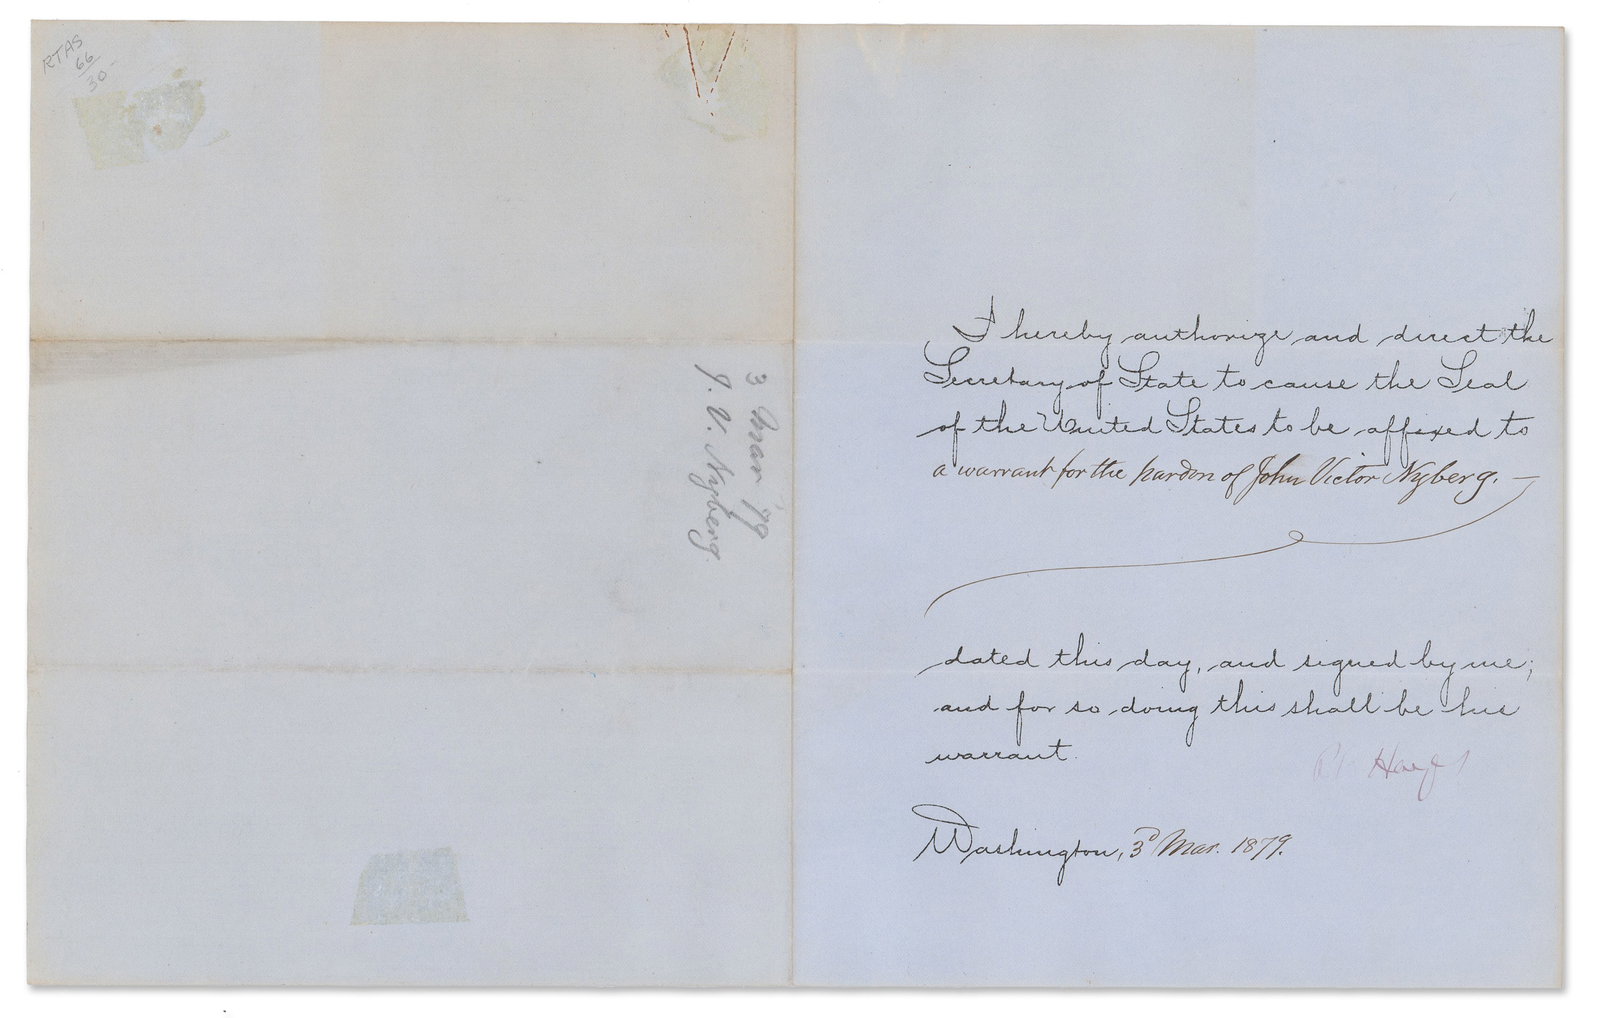 RTAS
66
30-
3 Mar '79
J. V. Nyberg.
I hereby authorize and direct the
Secretary of State to cause the Seal
of the United States to be affixed to
a warrant for the pardon of John Victor Nyberg. —
dated this day, and signed by me;
and for so doing this shall be his
warrant.
Washington, 3d Mar. 1879.